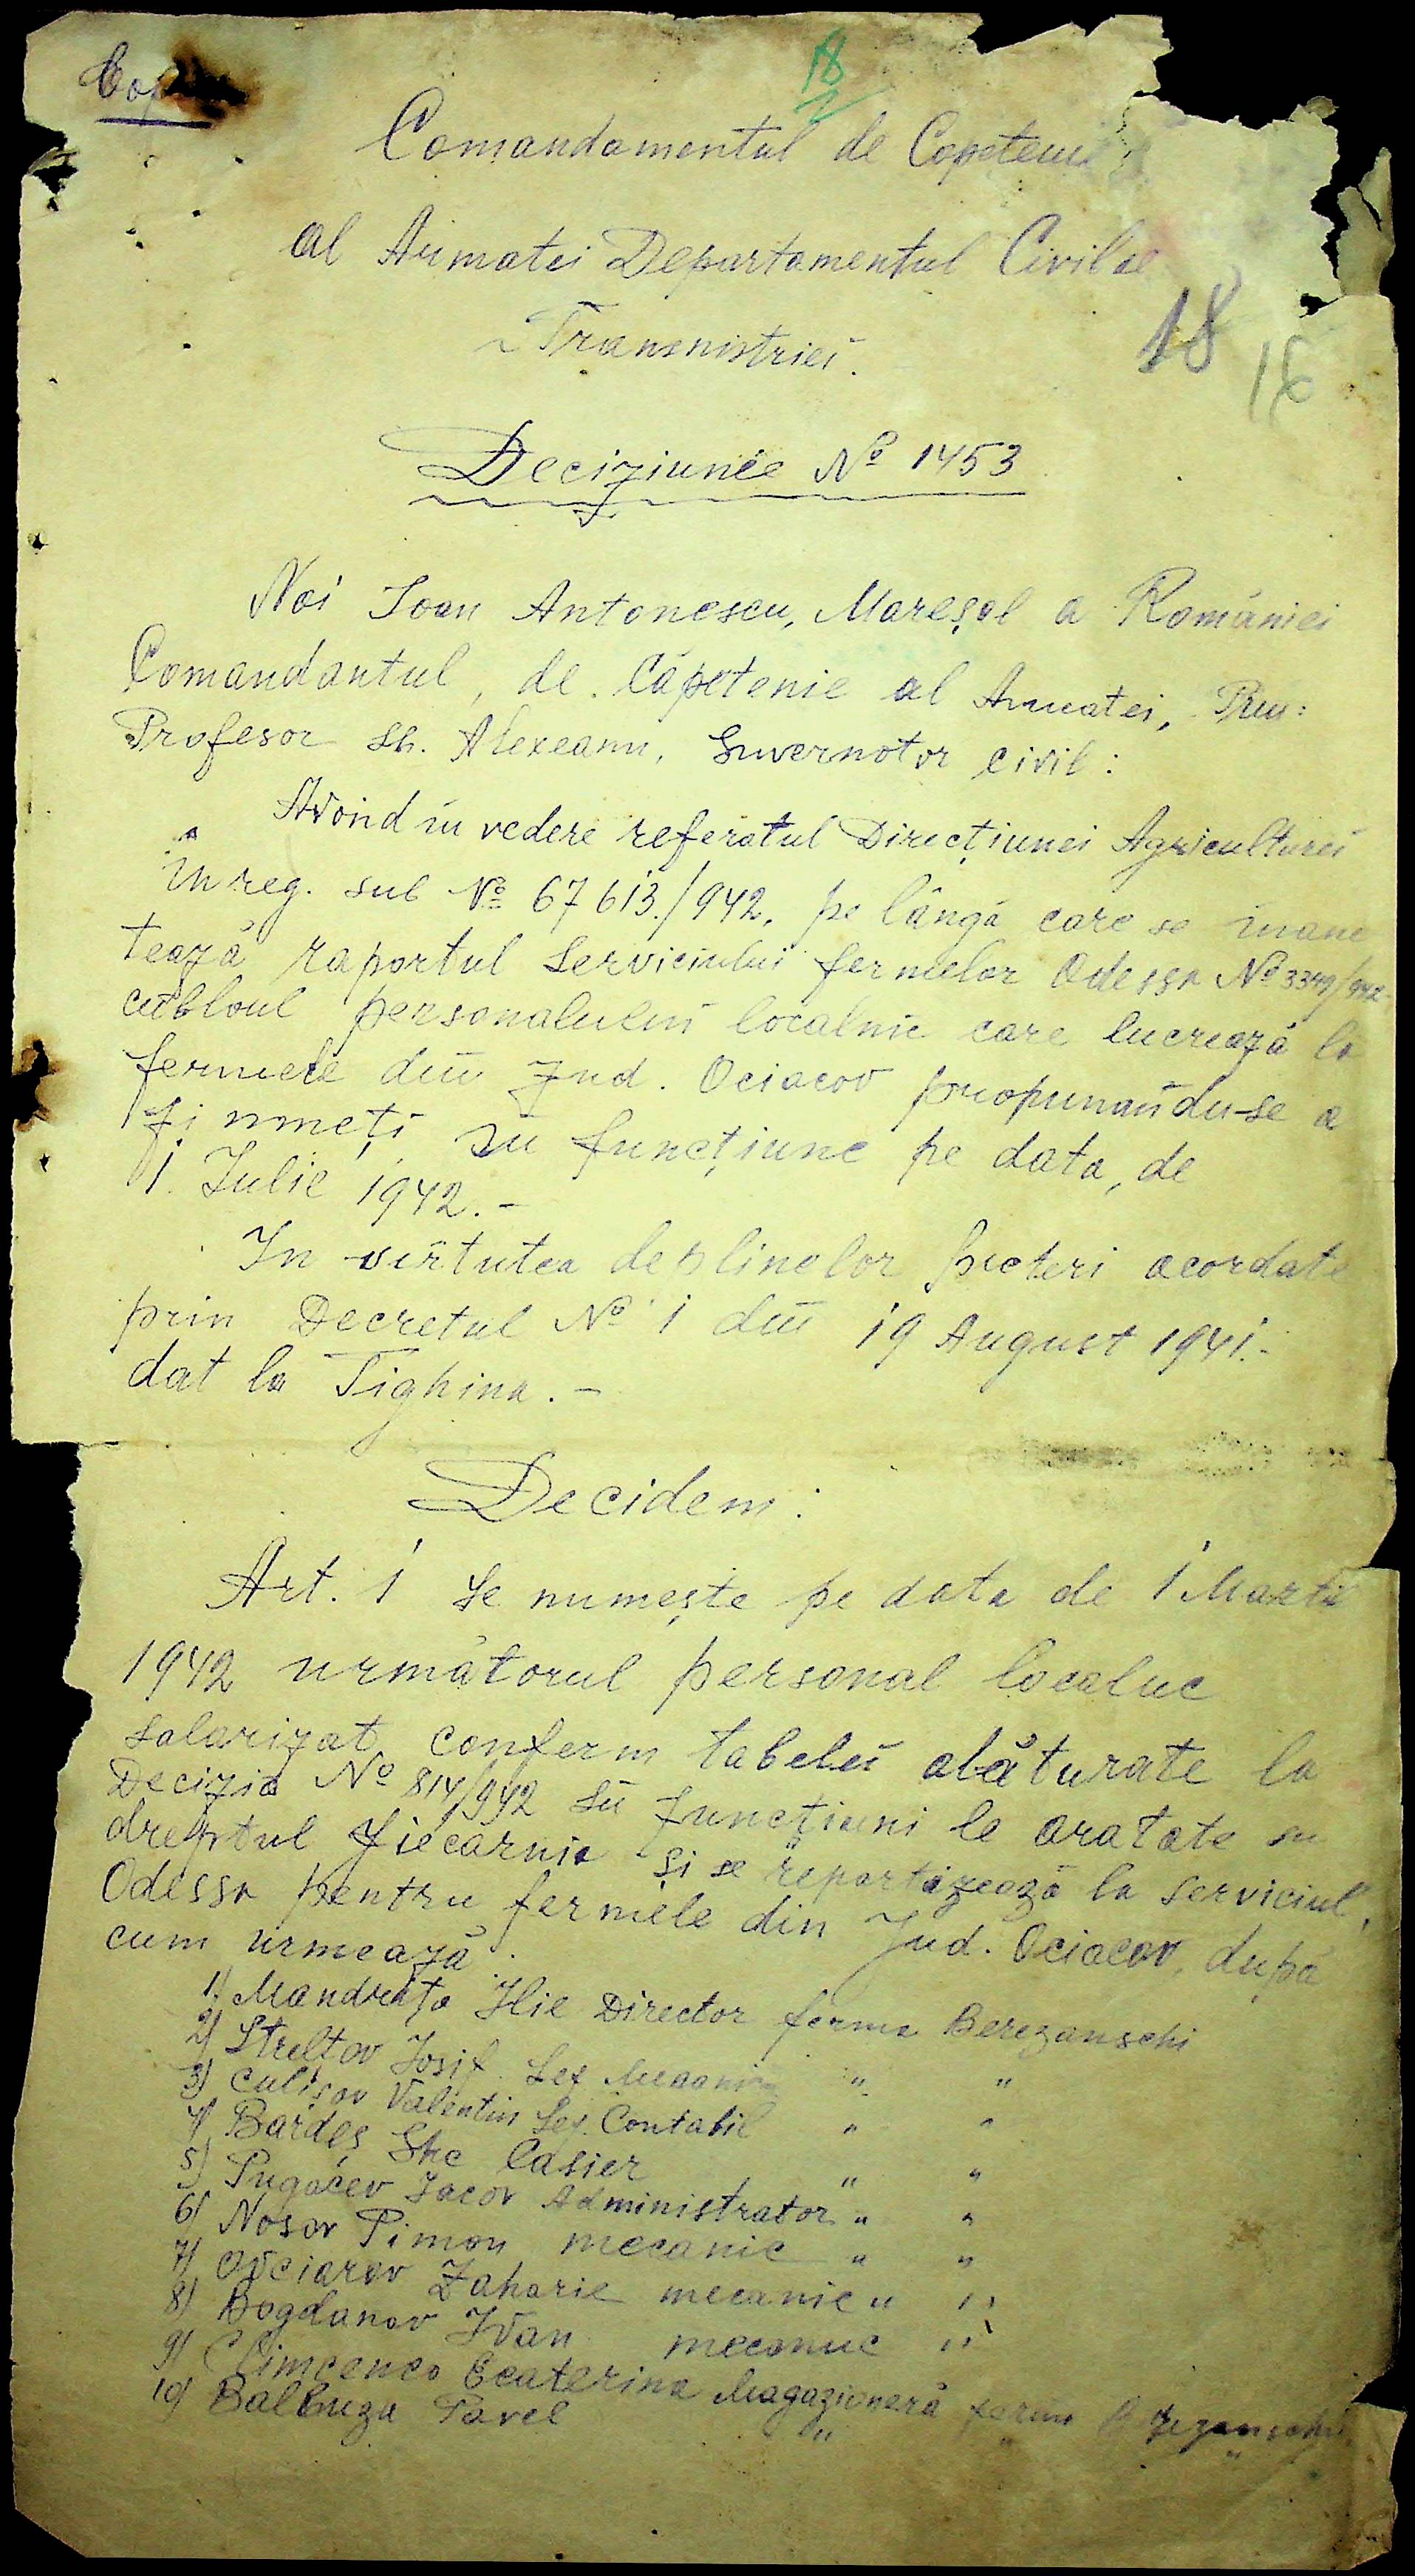 18
Comandamentul de Capeteni
al Armatei Departamentul Civil al
Transnistriei.
18
16
Deciziunea Nº 1453
Noi Ioan Antonescu, Mareșal a României
Comandantul, de Căpetenie al Armatei, Prin:
Profesor Gh. Alexeanu, Guvernator civil:
Având în vedere referatul Direcțiunei Agriculturei
înreg. sub Nº 67613/942, pe lângă care se înain
tează raportul Serviciului fermelor Odessa Nº 3349/942
personalului localnic care lucrează la
fermele din Jud. Ociacov propunându-se a
fi numeți în funcțiune pe data, de
1. Iulie 1942.-
In virtutea deplinelor puteri acordate
prin Decretul Nº 1 din 19 August 1941.-
dat la Tighina.-
Decidem:
Art. 1 Se numește pe data de 1 Martie
1942 următorul personal localnic
salarizat conform tabelei alăturate la
Decizia Nº 814/942 în funcțiuni le aratate in
dreptul fiecarnia și se repartizează la serviciul,
Odessa pentru fermele din Jud. Ociacov, după
cum urmează:
1) Mandrița Ilie Director ferma Berezanschi
2) Streltov Iosif Șef " "
3) Culișov Valentin Șef Contabil " "
4) Bardeș Casier " "
5) Pugacev Iacov Administrator " "
6) Nosov Pimon mecanic " "
7) Ovciarov Zaharie mecanic " "
8) Bogdanov Ivan mecanic "
9) Climcenco Ecaterina Magazioneră ferma Berezanschi
10) Balbuza Pavel " " "